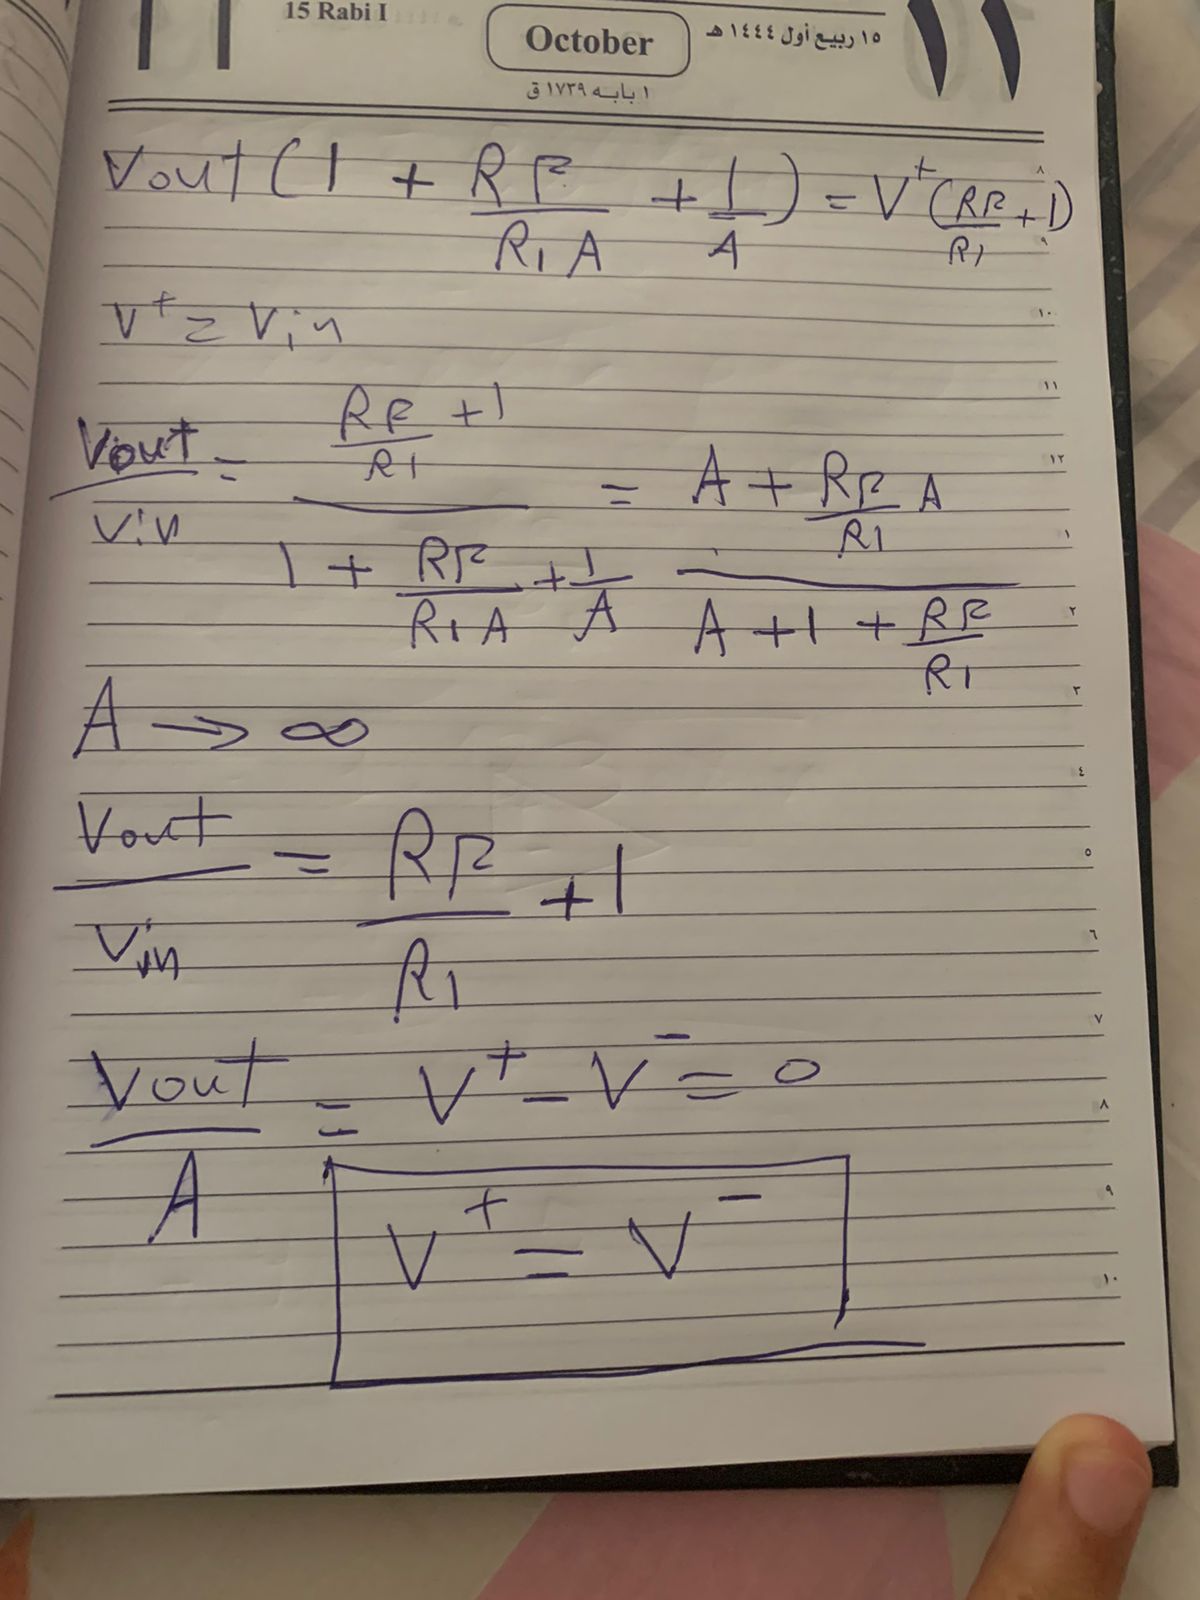 15 Rabi I
October
١٥ ربيع أول ١٤٤٤ هـ
١١
١ بابه ١٧٣٩ ق
Vout (1 + RF/R1 A + 1/A) = V⁺ (RF/R1 + 1)
V⁺ = Vin
Vout/Vin = (RF/R1 + 1)/(1 + RF/R1 A + 1/A) = (A + RF/R1 A)/(A + 1 + RF/R1)
A → ∞
Vout/Vin = RF/R1 + 1
Vout/A = V⁺ - V⁻ = 0
V⁺ = V⁻
٨
٩
١٠
١١
١٢
١
٢
٣
٤
٥
٦
٧
٨
٩
١٠